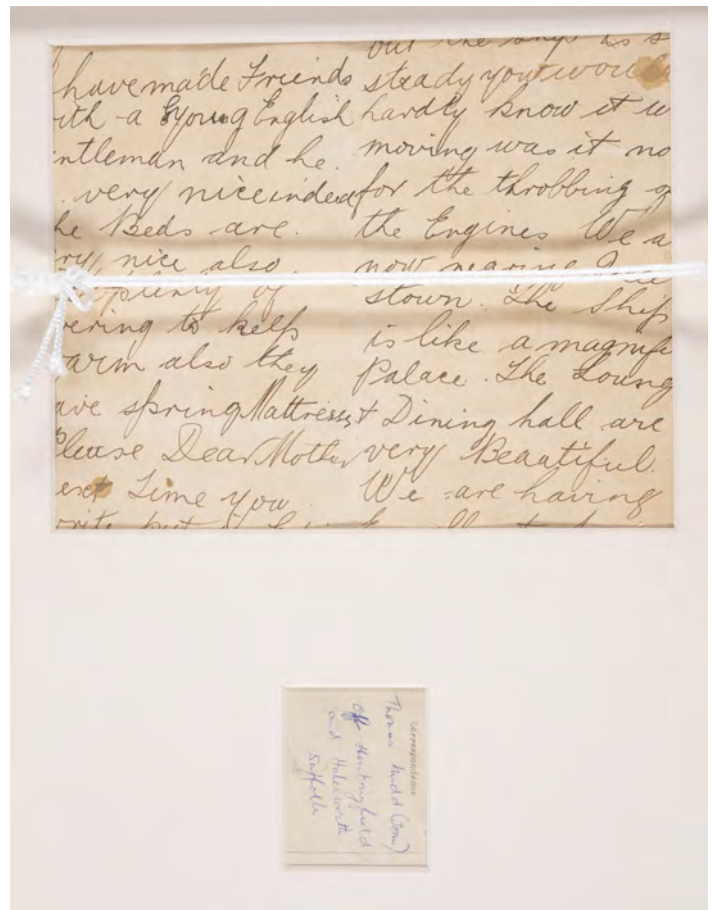 have made Friends
ith a young English
ntleman and he.
very nice indeed
he Beds are.
ry nice also
plenty of
vering to keep
arm also they
ave spring Mattresses
Please Dear Mother
ext Time you
rite but
out the ship is s
steady you would
hardly know it w
moving was it no
for the throbbing o
the Engines We a
now nearing Quee
stown. The Ship
is like a magnifi
Palace. The Loung
& Dining hall are
very Beautiful.
We are having
Correspondence
Thomas Mudd (Tom)
off Huntingfield
and Halesworth
Suffolk.